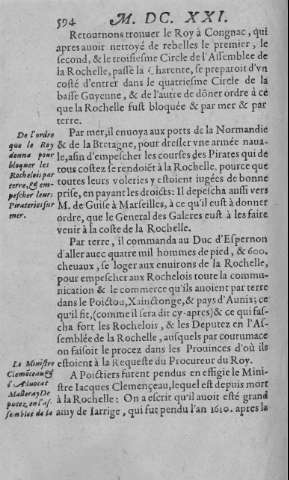 594 M. DC. XXI.
Retournons trouuer le Roy à Congnac, qui
apres auoir nettoyé de rebelles le premier, le
second, & le troisiesme Circle de l'Assemblee de
la Rochelle, passe la Charente, se preparoit d'vn
costé d'entrer dans le quatriesme Circle de la
basse Guyenne, & de l'autre de dôner ordre à ce
que la Rochelle fust bloquée & par mer & par
terre.
De l'ordre
que le Roy
donna pour
bloquer les
Rochelois par
terre, & em-
pescher leurs
Pirateries sur
mer.
Par mer, il enuoya aux ports de la Normandie
& de la Bretagne, pour dresser vne armée naua-
le, afin d'empescher les courses des Pirates qui de
tous costez se rendoiët à la Rochelle, pource que
toutes leurs voleries y estoient iugées de bonne
prise, en payant les droicts: Il depescha aussi vers
M. de Guise à Marseilles, à ce qu'il eust à donner
ordre, que le General des Galeres eust à les faire
venir à la coste de la Rochelle.
Par terre, il commanda au Duc d'Espernon
d'aller auec quatre mil hommes de pied, & 600.
cheuaux, se loger aux enuirons de la Rochelle,
pour empescher aux Rochelois toute la commu-
nication & le commerce qu'ils auoient par terre
dans le Poictou, Xainctonge, & pays d'Aunix; ce
qu'il fit, (comme il sera dit cy-apres) & ce qui fas-
cha fort les Rochelois, & les Deputez en l'As-
semblée de la Rochelle, ausquels par coustumace
on faisoit le procez dans les Prouinces d'où ils
estoient à la Requeste du Procureur du Roy.
Le Ministre
Clemẽceau, &
l'Aduocat
Malleray De
putez, en l'as-
semblee de la
A Poictiers furent pendus en effigie le Mini-
stre Iacques Clemençeau, lequel est depuis mort
à la Rochelle: On a escrit qu'il auoit esté grand
amy de Iarrige, qui fut pendu l'an 1610. apres la